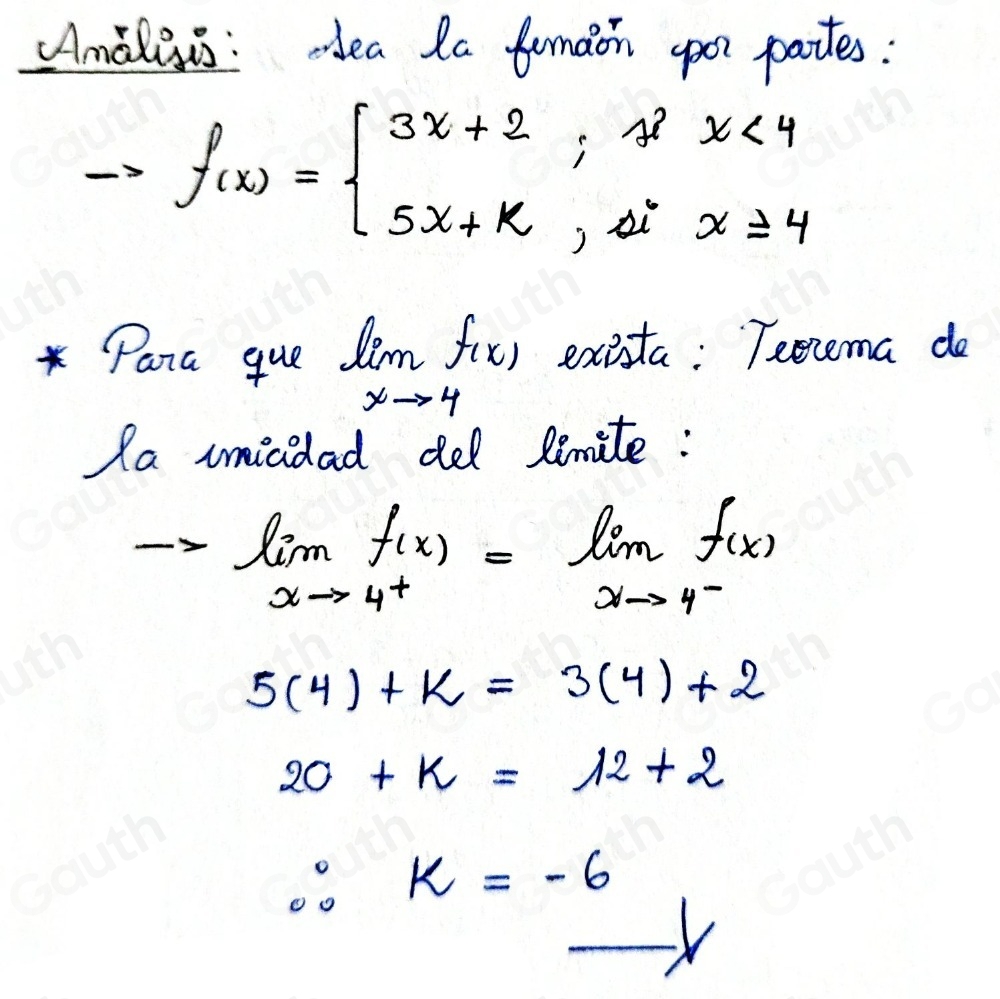 Análisis: Sea la función por partes:
→ f(x) = { 3x + 2 ; si x < 4
5x + K ; si x ≥ 4
* Para que lim f(x) exista: Teorema de
x → 4
la unicidad del límite:
→ lim f(x) = lim f(x)
x → 4⁺ x → 4⁻
5(4) + K = 3(4) + 2
20 + K = 12 + 2
∴ K = -6